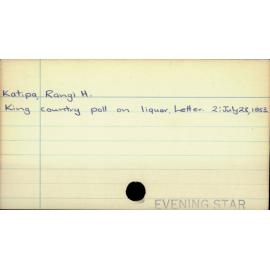 Katipa, Rangi H.
King country poll on liquor. Letter. 2: July 28, 1953
EVENING STAR